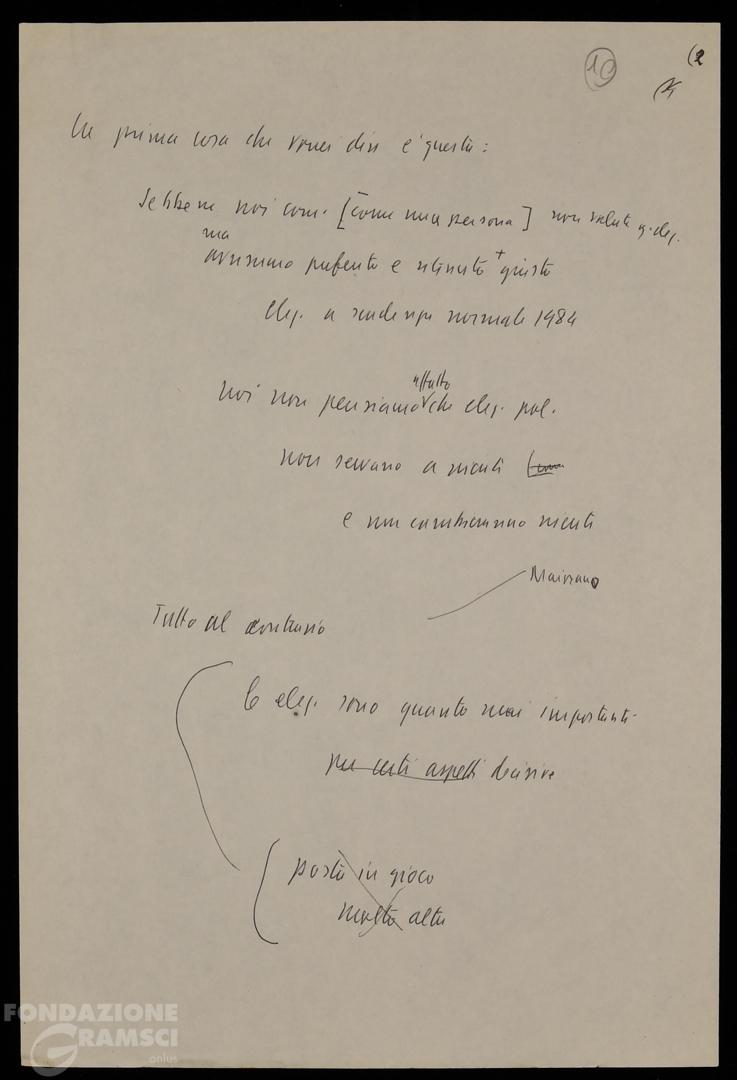 (2
19
La prima cosa che vorrei dire è questa:
Sebbene noi com. [come una persona] non voluti q. elez.
ma
avessimo preferito e ritenuto + giusto
elez. a scadenza normale 1984
affatto
Noi non pensiamo che elez. pol.
non servano a niente
e non cambieranno niente
Tutto al contrario
le elez. sono quanto mai importanti
per certi aspetti decisive
posta in gioco
molto alta
FONDAZIONE
GRAMSCI
onlus